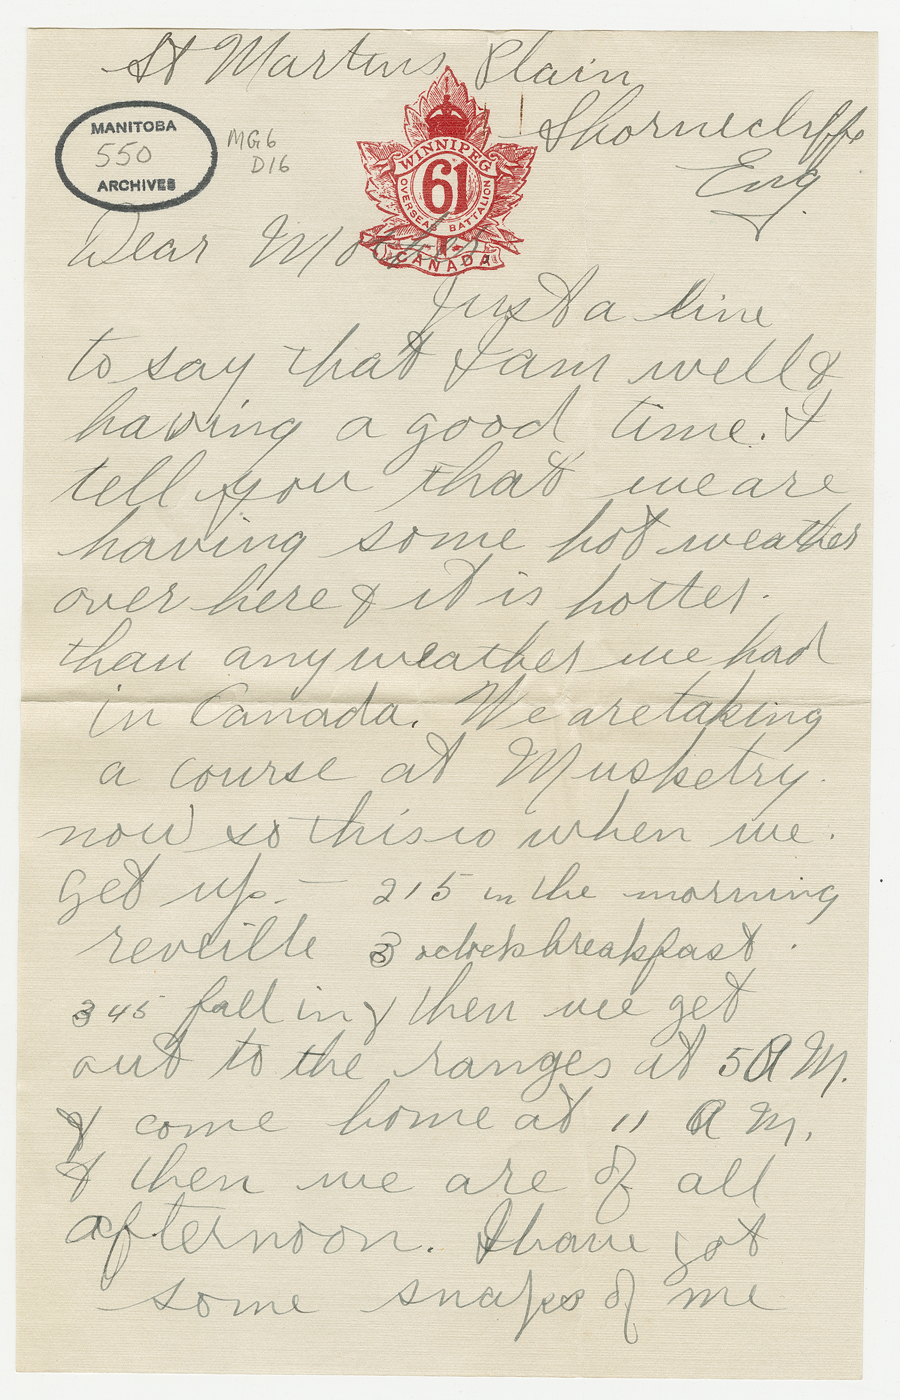 St Martins Plain
Shorncliffe
Eng
MANITOBA
550
ARCHIVES
MG6
D16
WINNIPEG
61
OVERSEAS BATTALION
CANADA
Dear Mother
Just a line
to say that I am well &
having a good time. I
tell you that we are
having some hot weather
over here & it is hotter
than any weather we had
in Canada. We are taking
a course at Musketry
now so this is when we
get up. — 215 in the morning
reveille 3 oclock breakfast
345 fall in & then we get
out to the ranges at 5 A M.
& come home at 11 A M.
& then we are of all
afternoon. I have got
some snaps of me